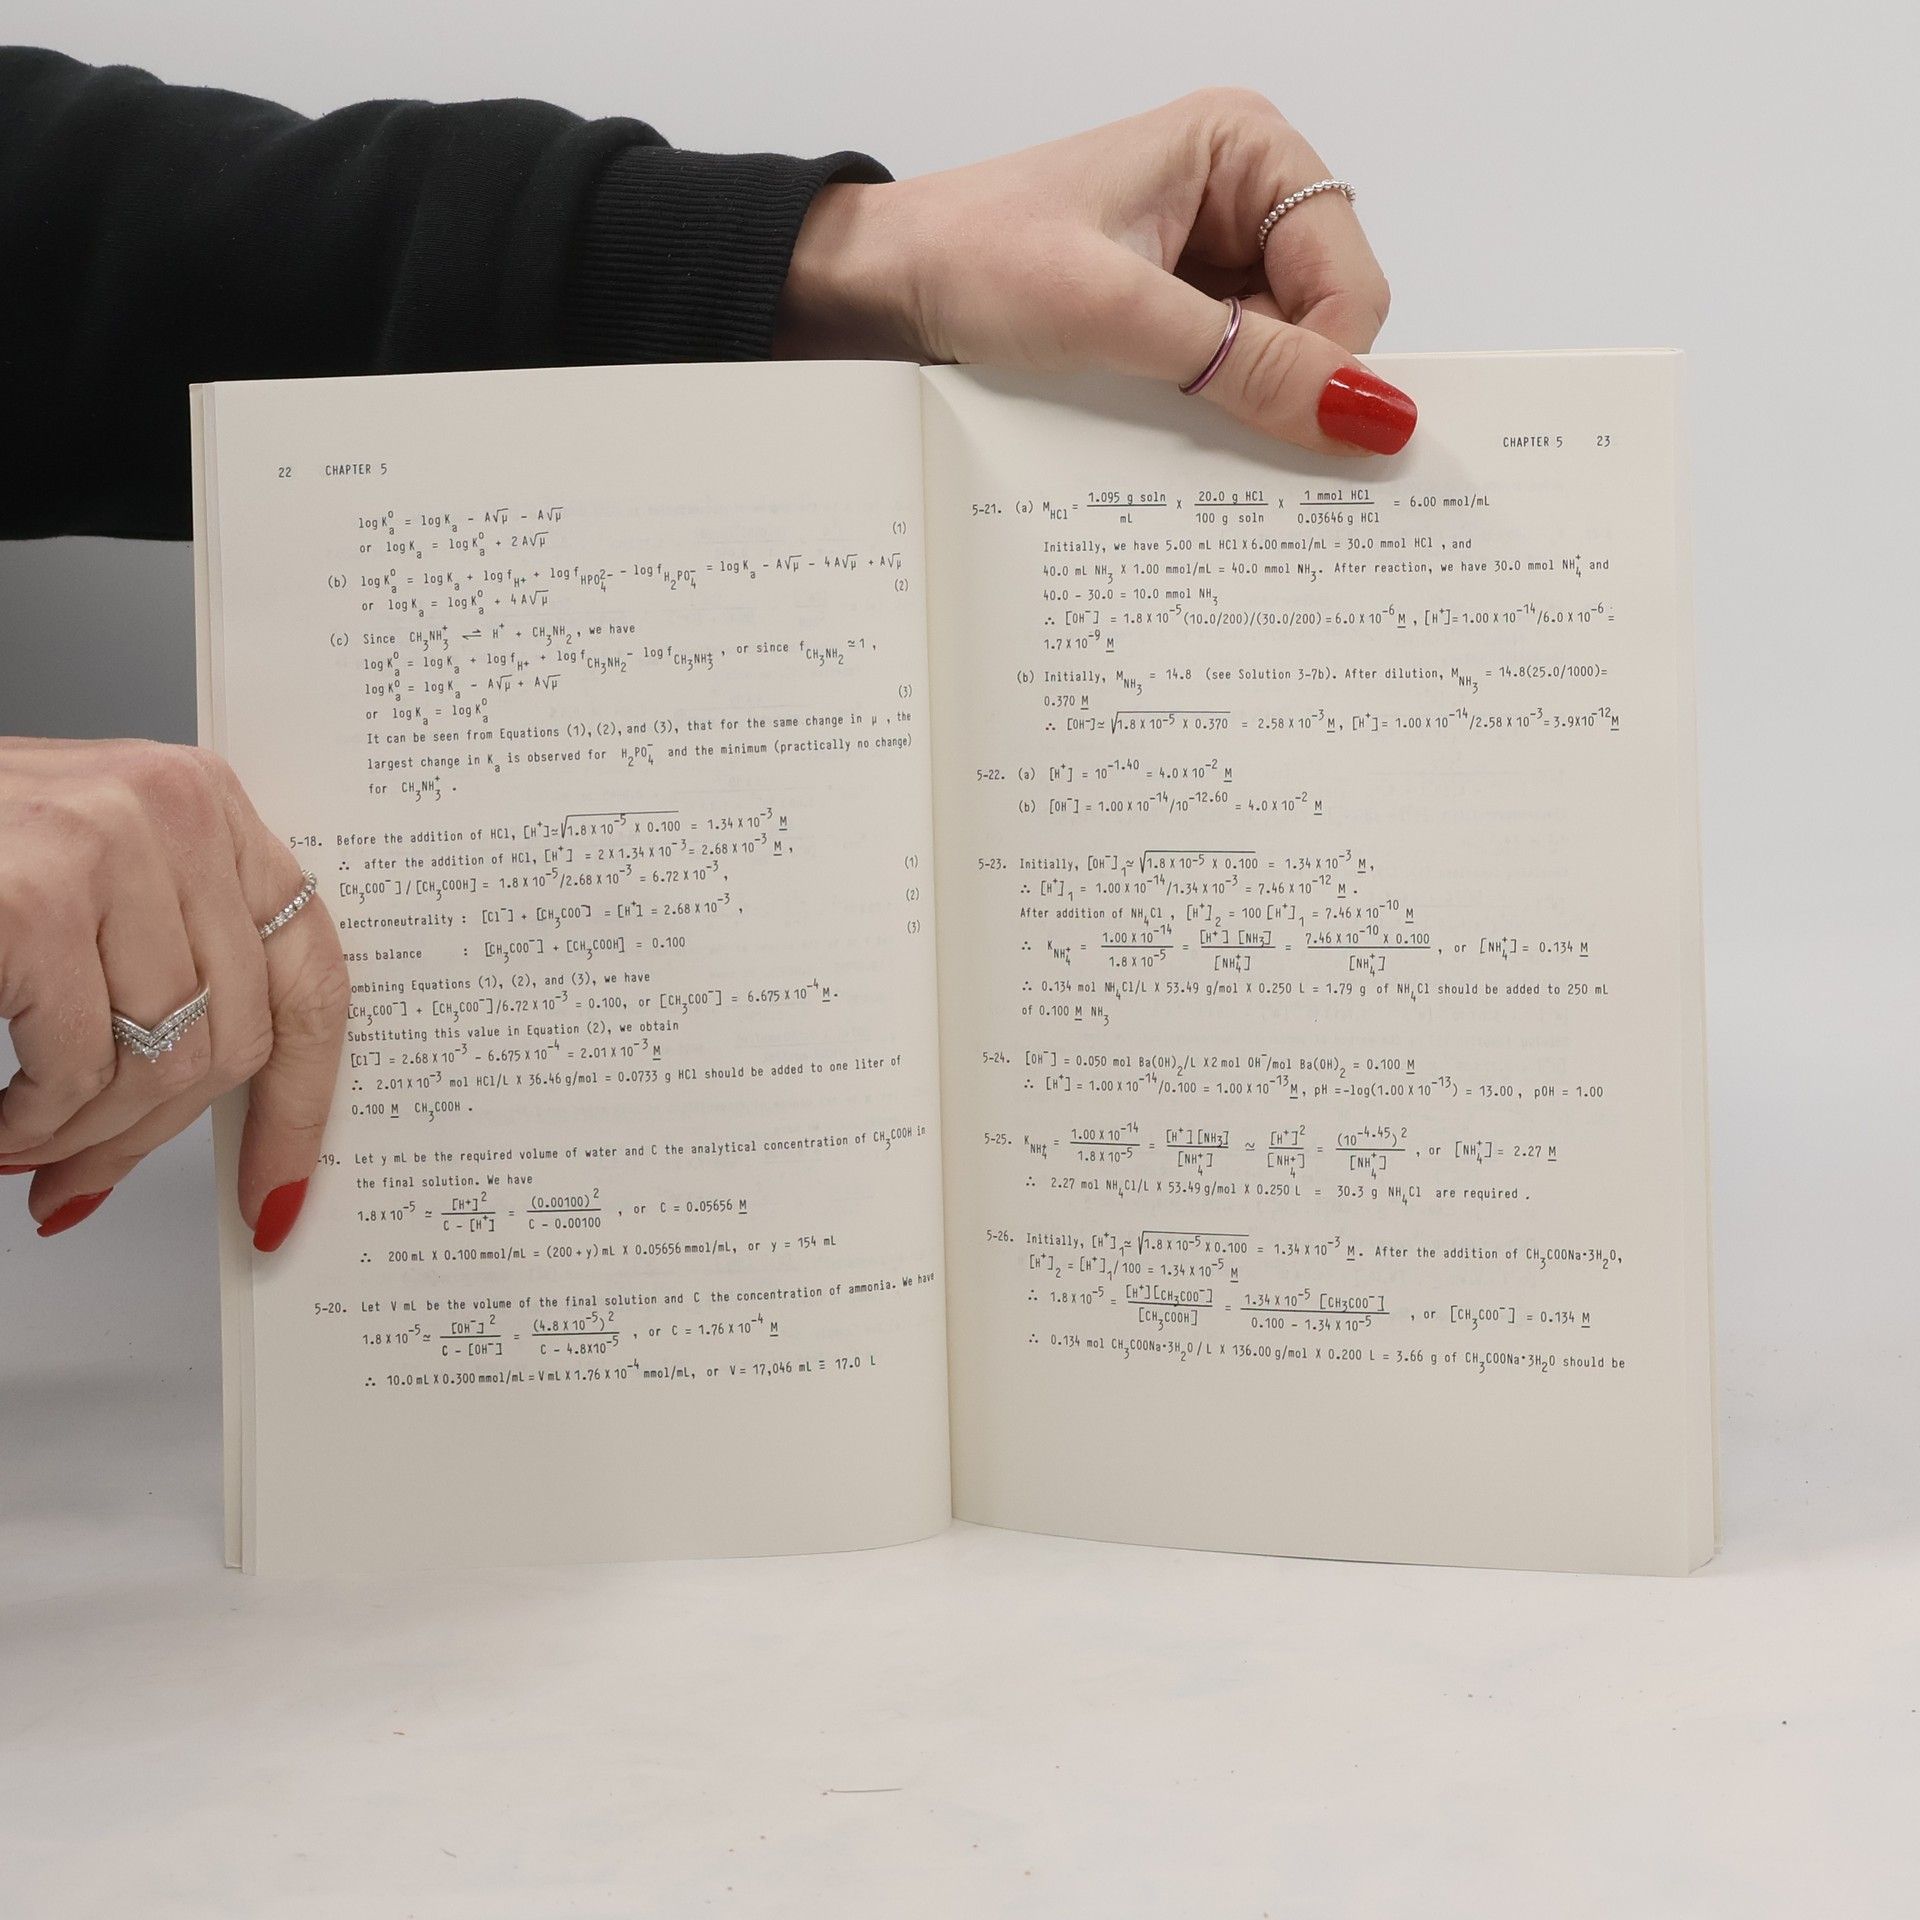 22 CHAPTER 5
log K°a = log Ka – A√μ – A√μ
or log Ka = log K°a + 2A√μ (1)
(b) log K°a = log Ka + log fH+ + log fHPO4²⁻ – log fH2PO4⁻ = log Ka – A√μ – 4A√μ + A√μ
or log Ka = log K°a + 4A√μ (2)
(c) Since CH3NH3⁺ ⇌ H⁺ + CH3NH2, we have
log K°a = log Ka + log fH+ + log fCH3NH2 – log fCH3NH3⁺, or since fCH3NH2 ≃ 1,
log K°a = log Ka – A√μ + A√μ
or log Ka = log K°a (3)
It can be seen from Equations (1), (2), and (3), that for the same change in μ, the
largest change in Ka is observed for H2PO4⁻ and the minimum (practically no change)
for CH3NH3⁺.
5-18. Before the addition of HCl, [H⁺] ≃ √1.8 X 10⁻⁵ X 0.100 = 1.34 X 10⁻³ M
∴ after the addition of HCl, [H⁺] = 2 X 1.34 X 10⁻³ = 2.68 X 10⁻³ M,
[CH3COO⁻] / [CH3COOH] = 1.8 X 10⁻⁵/2.68 X 10⁻³ = 6.72 X 10⁻³, (1)
electroneutrality : [Cl⁻] + [CH3COO⁻] = [H⁺] = 2.68 X 10⁻³, (2)
mass balance : [CH3COO⁻] + [CH3COOH] = 0.100 (3)
ombining Equations (1), (2), and (3), we have
[CH3COO⁻] + [CH3COO⁻]/6.72 X 10⁻³ = 0.100, or [CH3COO⁻] = 6.675 X 10⁻⁴ M.
Substituting this value in Equation (2), we obtain
[Cl⁻] = 2.68 X 10⁻³ – 6.675 X 10⁻⁴ = 2.01 X 10⁻³ M
∴ 2.01 X 10⁻³ mol HCl/L X 36.46 g/mol = 0.0733 g HCl should be added to one liter of
0.100 M CH3COOH.
-19. Let y mL be the required volume of water and C the analytical concentration of CH3COOH in
the final solution. We have
1.8 X 10⁻⁵ ≃ [H⁺]²/(C – [H⁺]) = (0.00100)²/(C – 0.00100), or C = 0.05656 M
∴ 200 mL X 0.100 mmol/mL = (200 + y) mL X 0.05656 mmol/mL, or y = 154 mL
5-20. Let V mL be the volume of the final solution and C the concentration of ammonia. We have
1.8 X 10⁻⁵ ≃ [OH⁻]²/(C – [OH⁻]) = (4.8 X 10⁻⁵)²/(C – 4.8X10⁻⁵), or C = 1.76 X 10⁻⁴ M
∴ 10.0 mL X 0.300 mmol/mL = V mL X 1.76 X 10⁻⁴ mmol/mL, or V = 17,046 mL ≡ 17.0 L
CHAPTER 5 23
5-21. (a) MHCl = 1.095 g soln/mL X 20.0 g HCl/100 g soln X 1 mmol HCl/0.03646 g HCl = 6.00 mmol/mL
Initially, we have 5.00 mL HCl X 6.00 mmol/mL = 30.0 mmol HCl, and
40.0 mL NH3 X 1.00 mmol/mL = 40.0 mmol NH3. After reaction, we have 30.0 mmol NH4⁺ and
40.0 – 30.0 = 10.0 mmol NH3
∴ [OH⁻] = 1.8 X 10⁻⁵(10.0/200)/(30.0/200) = 6.0 X 10⁻⁶ M, [H⁺] = 1.00 X 10⁻¹⁴/6.0 X 10⁻⁶ =
1.7 X 10⁻⁹ M
(b) Initially, MNH3 = 14.8 (see Solution 3-7b). After dilution, MNH3 = 14.8(25.0/1000)=
0.370 M
∴ [OH⁻] ≃ √1.8 X 10⁻⁵ X 0.370 = 2.58 X 10⁻³ M, [H⁺] = 1.00 X 10⁻¹⁴/2.58 X 10⁻³ = 3.9X10⁻¹² M
5-22. (a) [H⁺] = 10⁻¹·⁴⁰ = 4.0 X 10⁻² M
(b) [OH⁻] = 1.00 X 10⁻¹⁴/10⁻¹²·⁶⁰ = 4.0 X 10⁻² M
5-23. Initially, [OH⁻]1 ≃ √1.8 X 10⁻⁵ X 0.100 = 1.34 X 10⁻³ M,
∴ [H⁺]1 = 1.00 X 10⁻¹⁴/1.34 X 10⁻³ = 7.46 X 10⁻¹² M.
After addition of NH4Cl, [H⁺]2 = 100 [H⁺]1 = 7.46 X 10⁻¹⁰ M
∴ KNH4⁺ = 1.00 X 10⁻¹⁴/1.8 X 10⁻⁵ = [H⁺] [NH3]/[NH4⁺] = 7.46 X 10⁻¹⁰ X 0.100/[NH4⁺], or [NH4⁺] = 0.134 M
∴ 0.134 mol NH4Cl/L X 53.49 g/mol X 0.250 L = 1.79 g of NH4Cl should be added to 250 mL
of 0.100 M NH3
5-24. [OH⁻] = 0.050 mol Ba(OH)2/L X 2 mol OH⁻/mol Ba(OH)2 = 0.100 M
∴ [H⁺] = 1.00 X 10⁻¹⁴/0.100 = 1.00 X 10⁻¹³ M, pH = -log(1.00 X 10⁻¹³) = 13.00, pOH = 1.00
5-25. KNH4⁺ = 1.00 X 10⁻¹⁴/1.8 X 10⁻⁵ = [H⁺] [NH3]/[NH4⁺] ≃ [H⁺]²/[NH4⁺] = (10⁻⁴·⁴⁵)²/[NH4⁺], or [NH4⁺] = 2.27 M
∴ 2.27 mol NH4Cl/L X 53.49 g/mol X 0.250 L = 30.3 g NH4Cl are required.
5-26. Initially, [H⁺]1 ≃ √1.8 X 10⁻⁵ X 0.100 = 1.34 X 10⁻³ M. After the addition of CH3COONa·3H2O,
[H⁺]2 = [H⁺]1/100 = 1.34 X 10⁻⁵ M
∴ 1.8 X 10⁻⁵ = [H⁺][CH3COO⁻]/[CH3COOH] = 1.34 X 10⁻⁵ [CH3COO⁻]/(0.100 – 1.34 X 10⁻⁵), or [CH3COO⁻] = 0.134 M
∴ 0.134 mol CH3COONa·3H2O/L X 136.00 g/mol X 0.200 L = 3.66 g of CH3COONa·3H2O should be